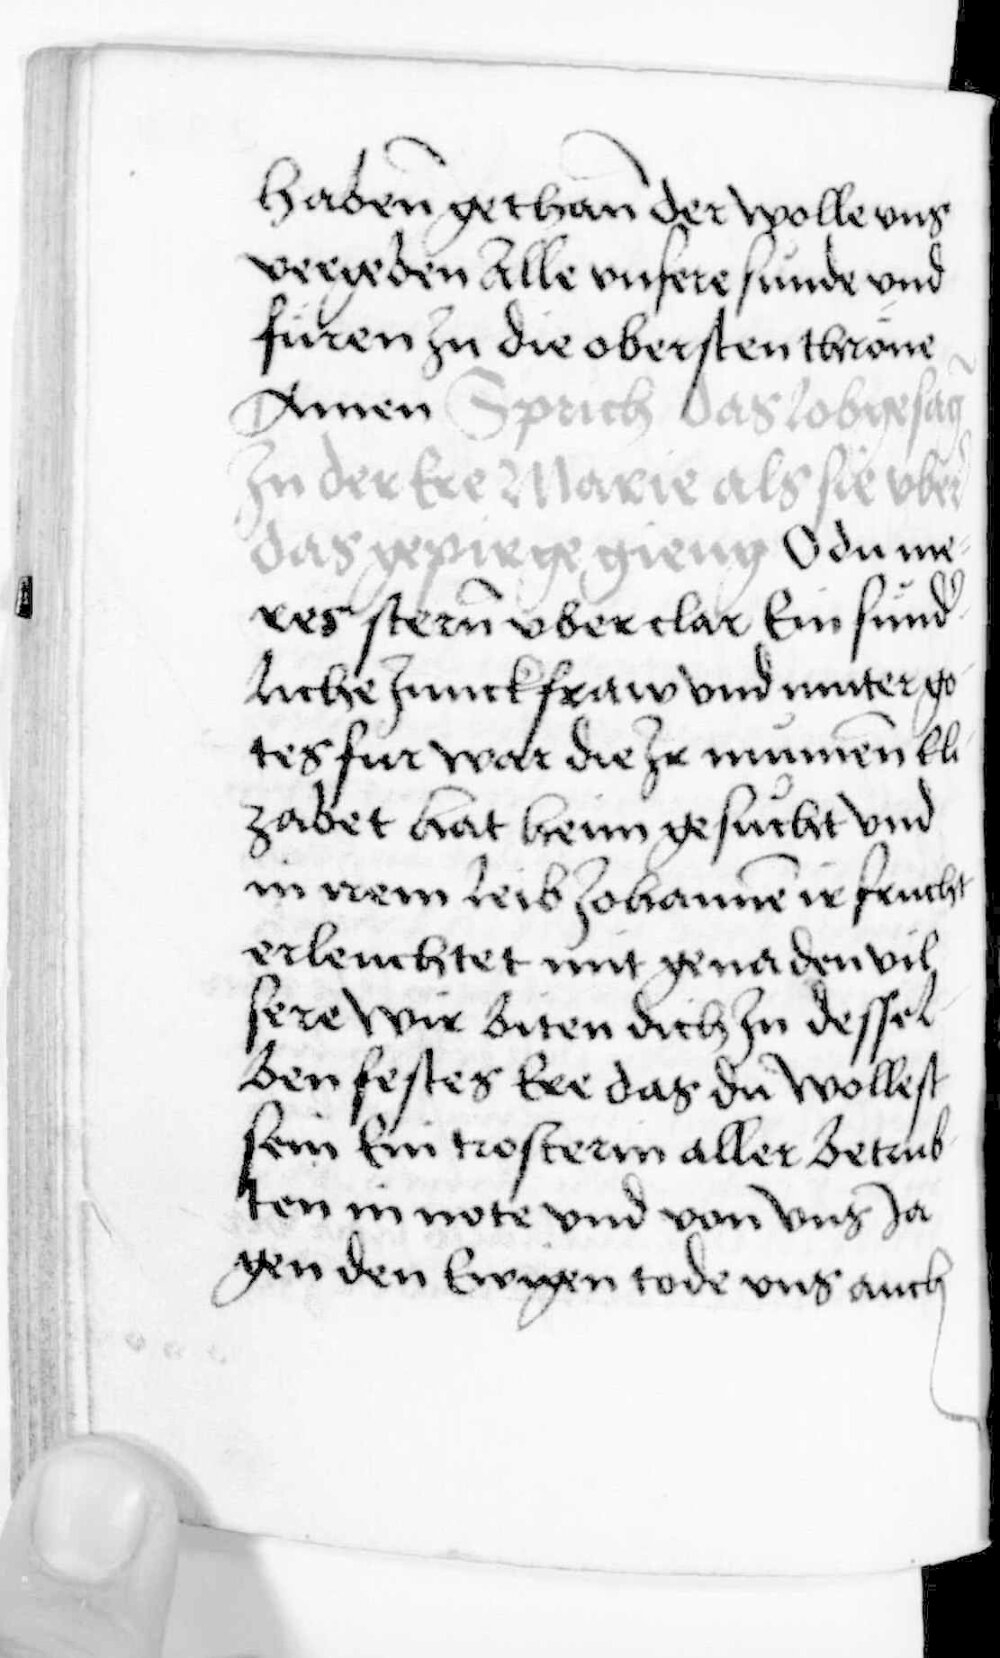 Haben̄ gethan̄ der wolle vns
vergeben Alle vnsere sunde vnd
füren zu die obersten thröne
Amen Sprich das lobgesāg
zu der Ere Marie als sie vber
das gepirge gieng O du me-
res stern̄ vber clar Ein sund-
liche Junckfraw vnd muter go-
tes fur war die Ir mumen̄ Eli
zabet hat heim gesücht vnd
in irem leib Johannē ir frucht
erleuchtet mit genaden vil
sere wir biten dich zu dessel-
ben festes Ere das dü wollest
sein Ein trosterin aller betrub-
ten in note vnd von vns Ja
gen den Ewigen tode vns auch